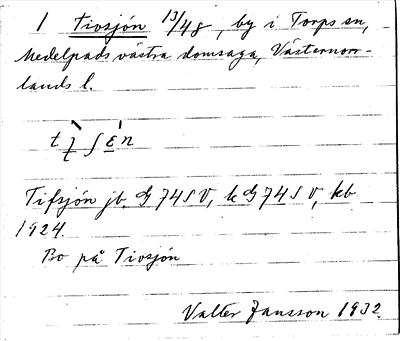 1 Tiosjön 13/48, by i Torps sn,
Medelpads västra domsaga, Västernorr-
lands l.
Tifsjön jb. G 745 V, k G 745 V, kb
1924.
Bo på Tiosjön
Valter Jansson 1932.